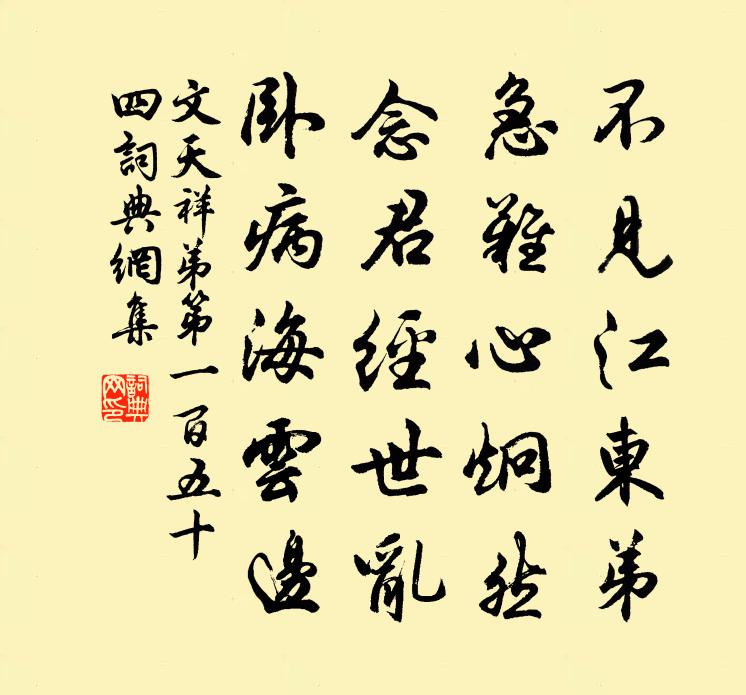 不見江東弟
急難心炯然
念君經世亂
卧病海雲邊
文天祥弟第一百五十
四詞典網集
詞典網印